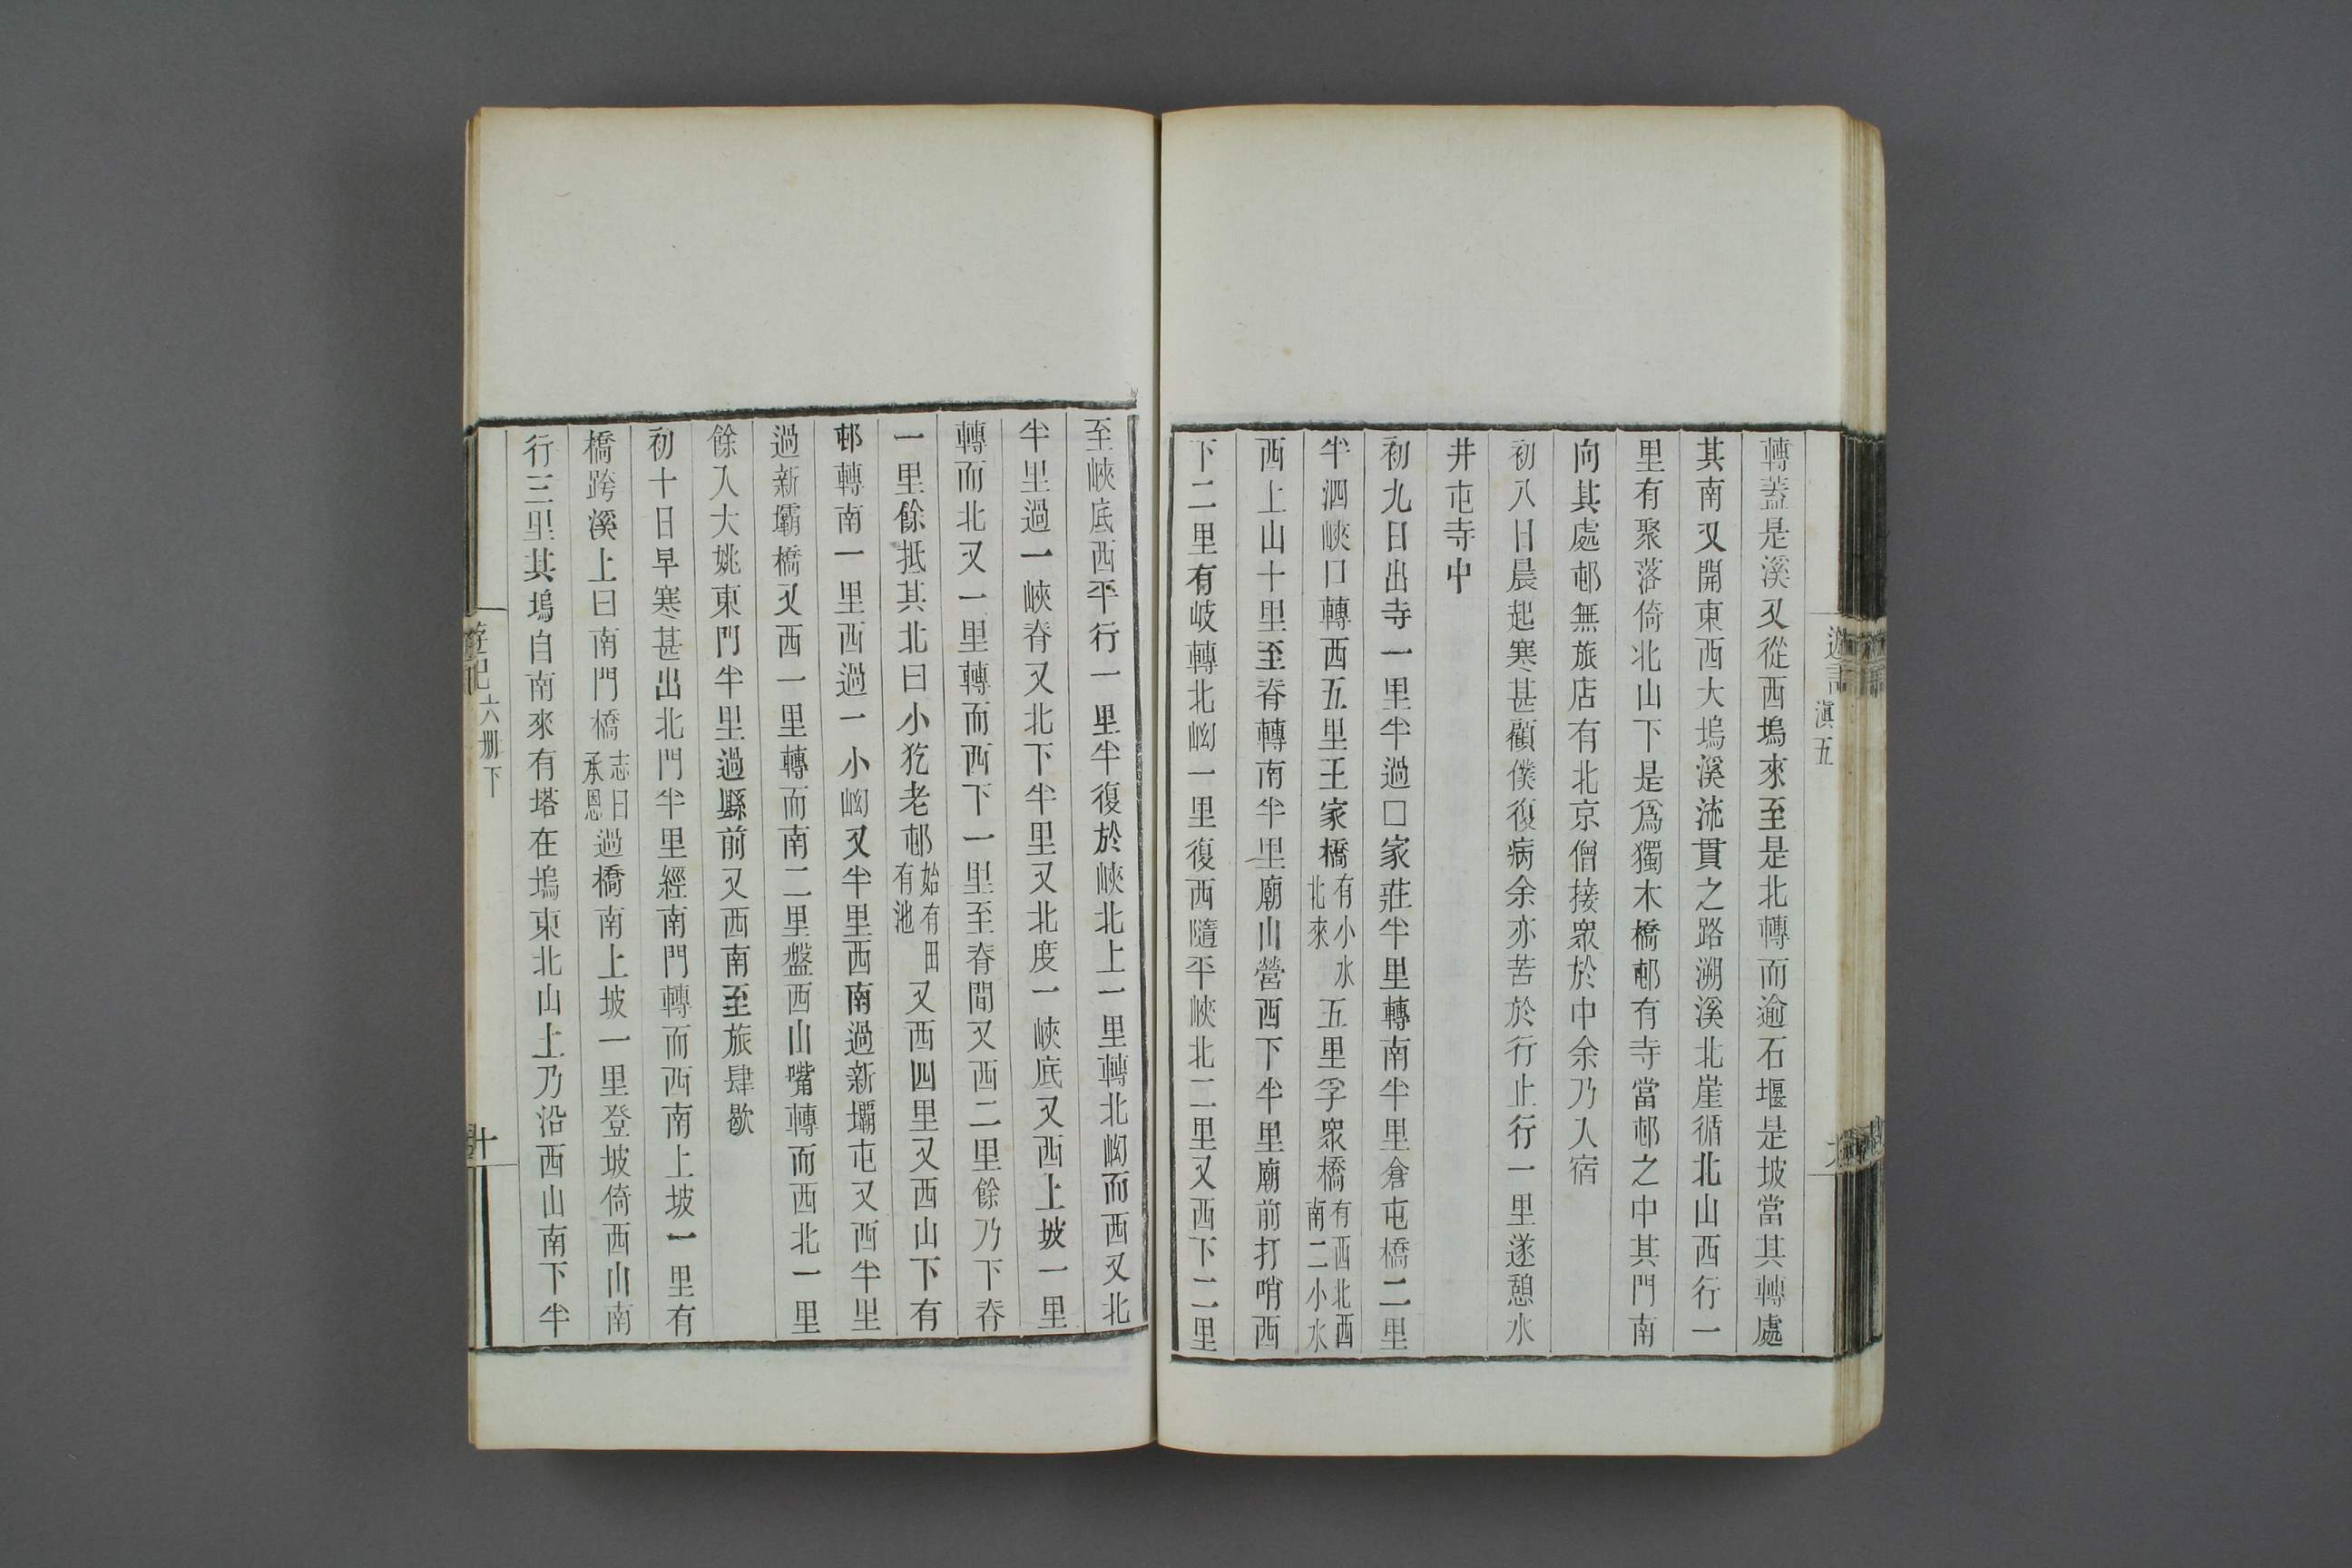 遊記
滇五
轉蓋是溪又從西塢來至是北轉而逾石堰是坡當其轉處
其南又開東西大塢溪流貫之路溯溪北崖循北山西行一
里有聚落倚北山下是爲獨木橋邨有寺當邨之中其門南
向其處邨無旅店有北京僧接衆於中余乃入宿
初八日晨起寒甚顧僕復病余亦苦於行止行一里遂憩水
井屯寺中
初九日出寺一里半過□家莊半里轉南半里倉屯橋二里
半泗峽口轉西五里王家橋有小水北來五里孚衆橋有西北西南二小水
西上山十里至脊轉南半里廟山營西下半里廟前打哨西
下二里有岐轉北坳一里復西隨平峽北二里又西下二里
至峽底西平行一里半復於峽北上一里轉北坳而西又北
半里過一峽脊又北下半里又北度一峽底又西上坡一里
轉而北又一里轉而西下一里至脊間又西二里餘乃下脊
一里餘抵其北曰小犵老邨始有田有池又西四里又西山下有
邨轉南一里西過一小坳又半里西南過新壩屯又西半里
過新壩橋又西一里轉而南二里盤西山嘴轉而西北一里
餘入大姚東門半里過縣前又西南至旅肆歇
初十日早寒甚出北門半里經南門轉而西南上坡一里有
橋跨溪上曰南門橋志曰承恩過橋南上坡一里登坡倚西山南
行三里其塢自南來有塔在塢東北山上乃沿西山南下半
遊記
六册下
十